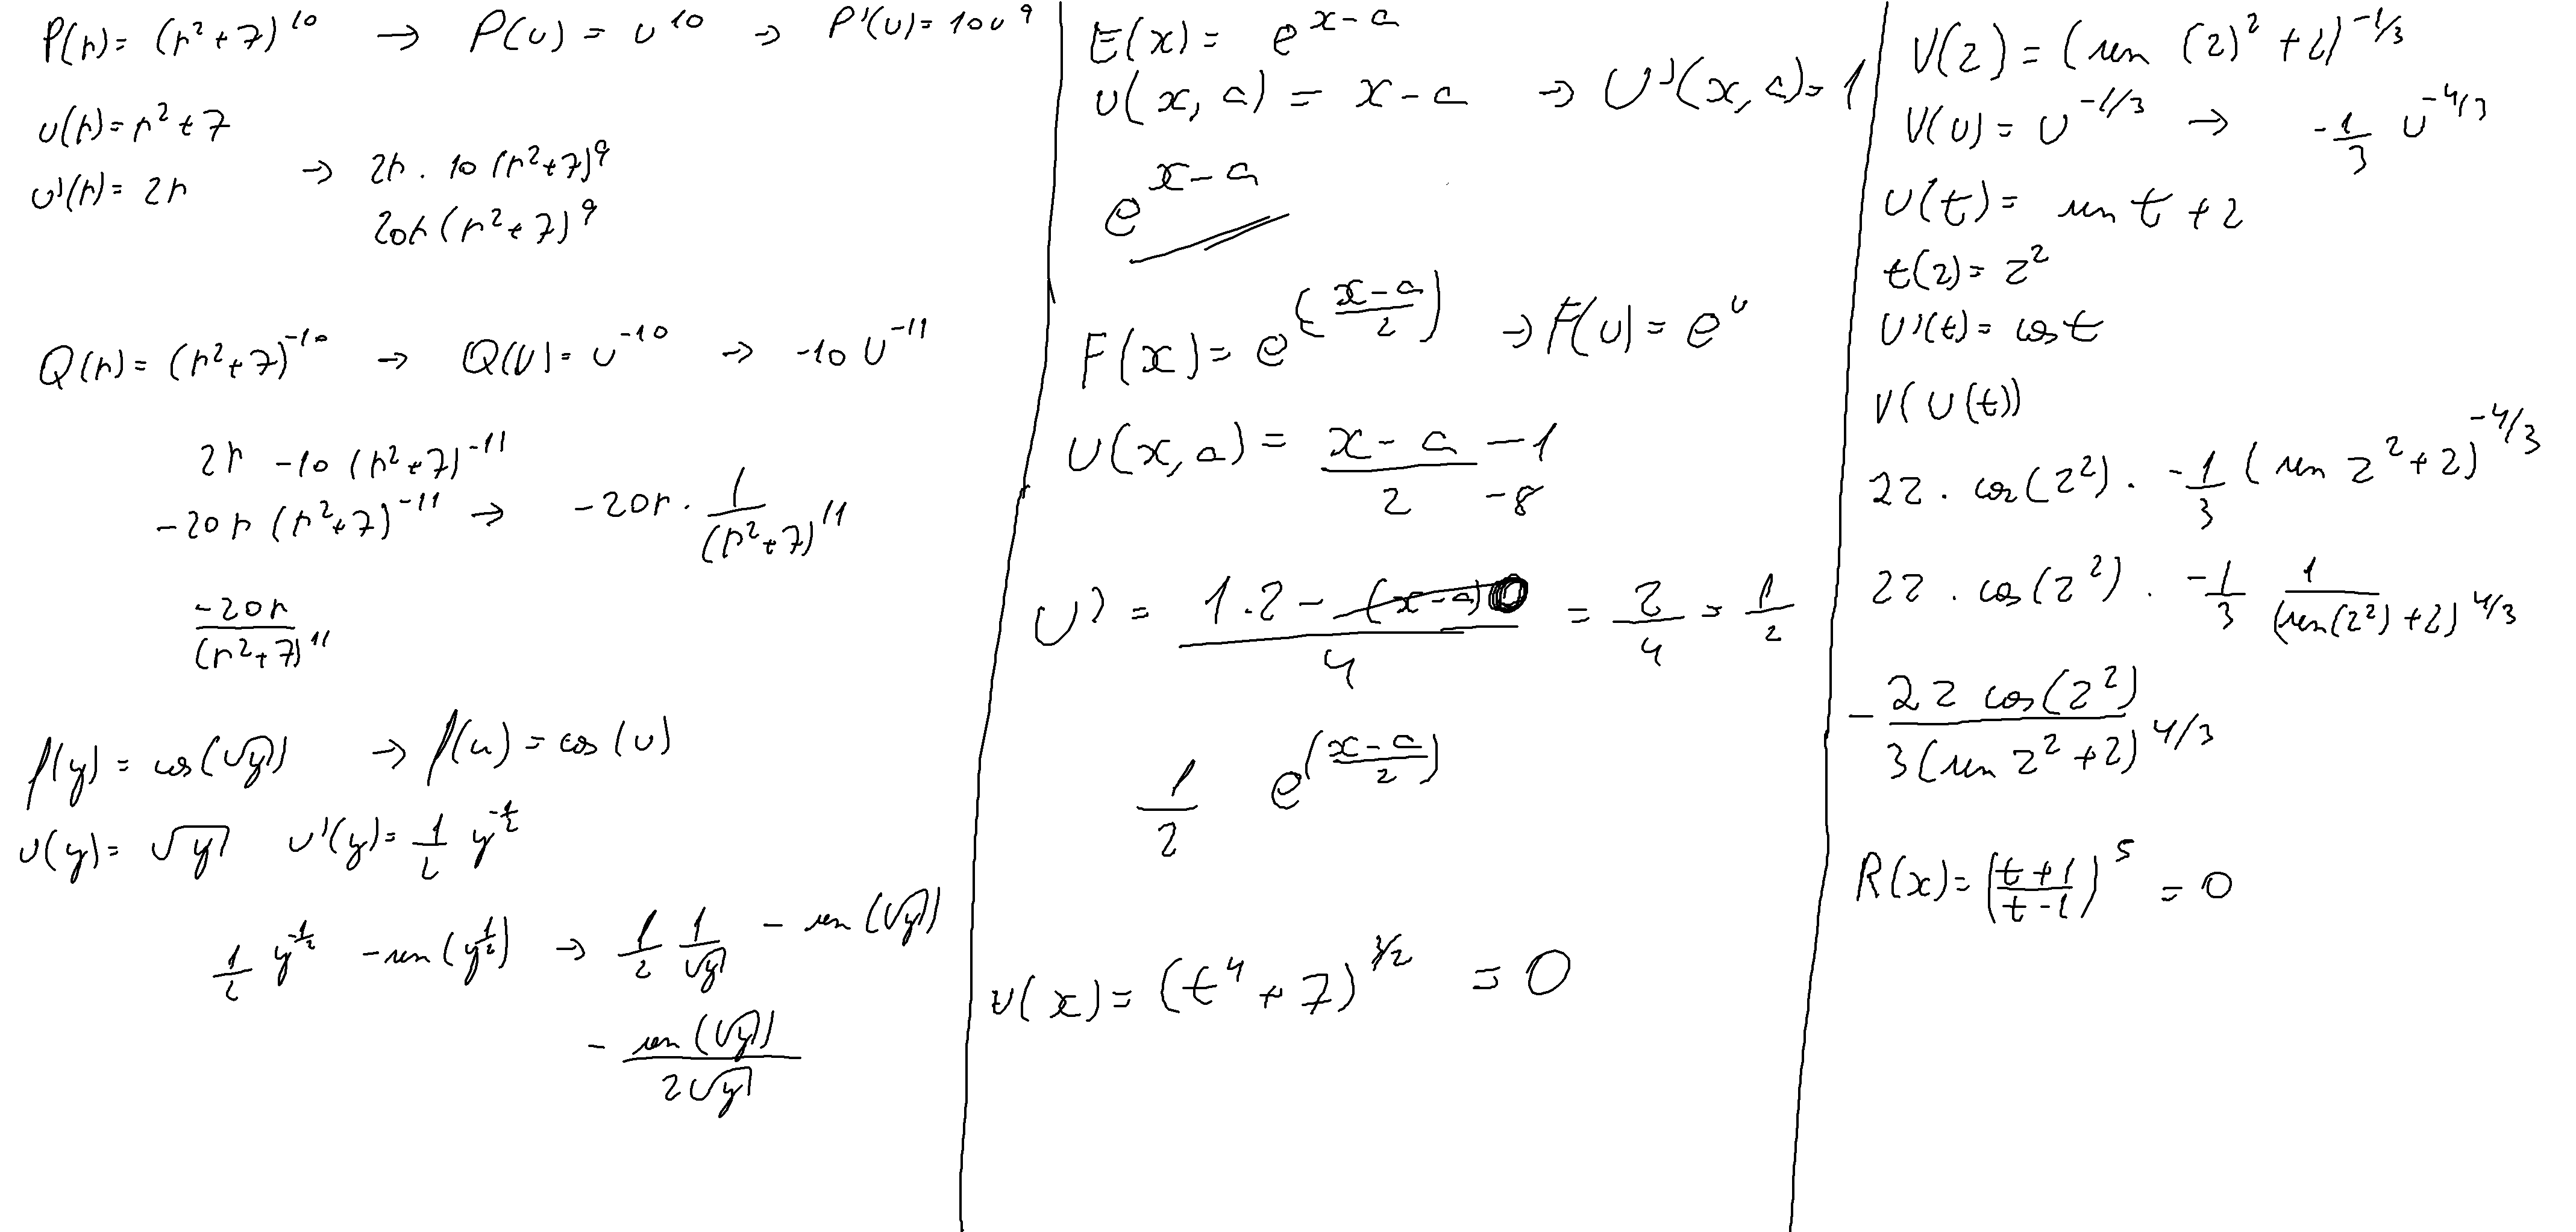 P(r) = (r²+7)¹⁰ → P(u) = u¹⁰ → P'(u) = 10u⁹
u(r) = r²+7
u'(r) = 2r → 2r · 10 (r²+7)⁹
20r (r²+7)⁹
Q(r) = (r²+7)⁻¹⁰ → Q(U) = u⁻¹⁰ → -10 U⁻¹¹
2r -10 (r²+7)⁻¹¹
-20r (r²+7)⁻¹¹ → -20r · 1/(r²+7)¹¹
-20r/(r²+7)¹¹
f(y) = cos(√y) → f(u) = cos(u)
u(y) = √y u'(y) = 1/2 y^(-1/2)
1/2 y^(-1/2) -sen(y^(1/2)) → 1/2 1/√y - sen(√y)
- sen(√y)/(2√y)
E(x) = e^(x-a)
u(x,a) = x-a → U'(x,a) = 1
e^(x-a)
F(x) = e^((x-a)/2) → F(u) = e^u
U(x,a) = (x-a)/2 -1 -8
U' = (1·2 - (x-a)0)/4 = 2/4 = 1/2
1/2 e^((x-a)/2)
v(x) = (t⁴+7)^(3/2) = 0
V(z) = (sen (z)² + 2)^(-1/3)
V(u) = U^(-1/3) → -1/3 U^(-4/3)
U(t) = sen t + 2
t(z) = z²
U'(t) = cos t
V(U(t))
2z · cos(z²) · -1/3 (sen z²+2)^(-4/3)
2z · cos(z²) · -1/3 1/(sen(z²)+2)^(4/3)
- 2z cos(z²)/3(sen z²+2)^(4/3)
R(x) = ((t+1)/(t-1))⁵ = 0